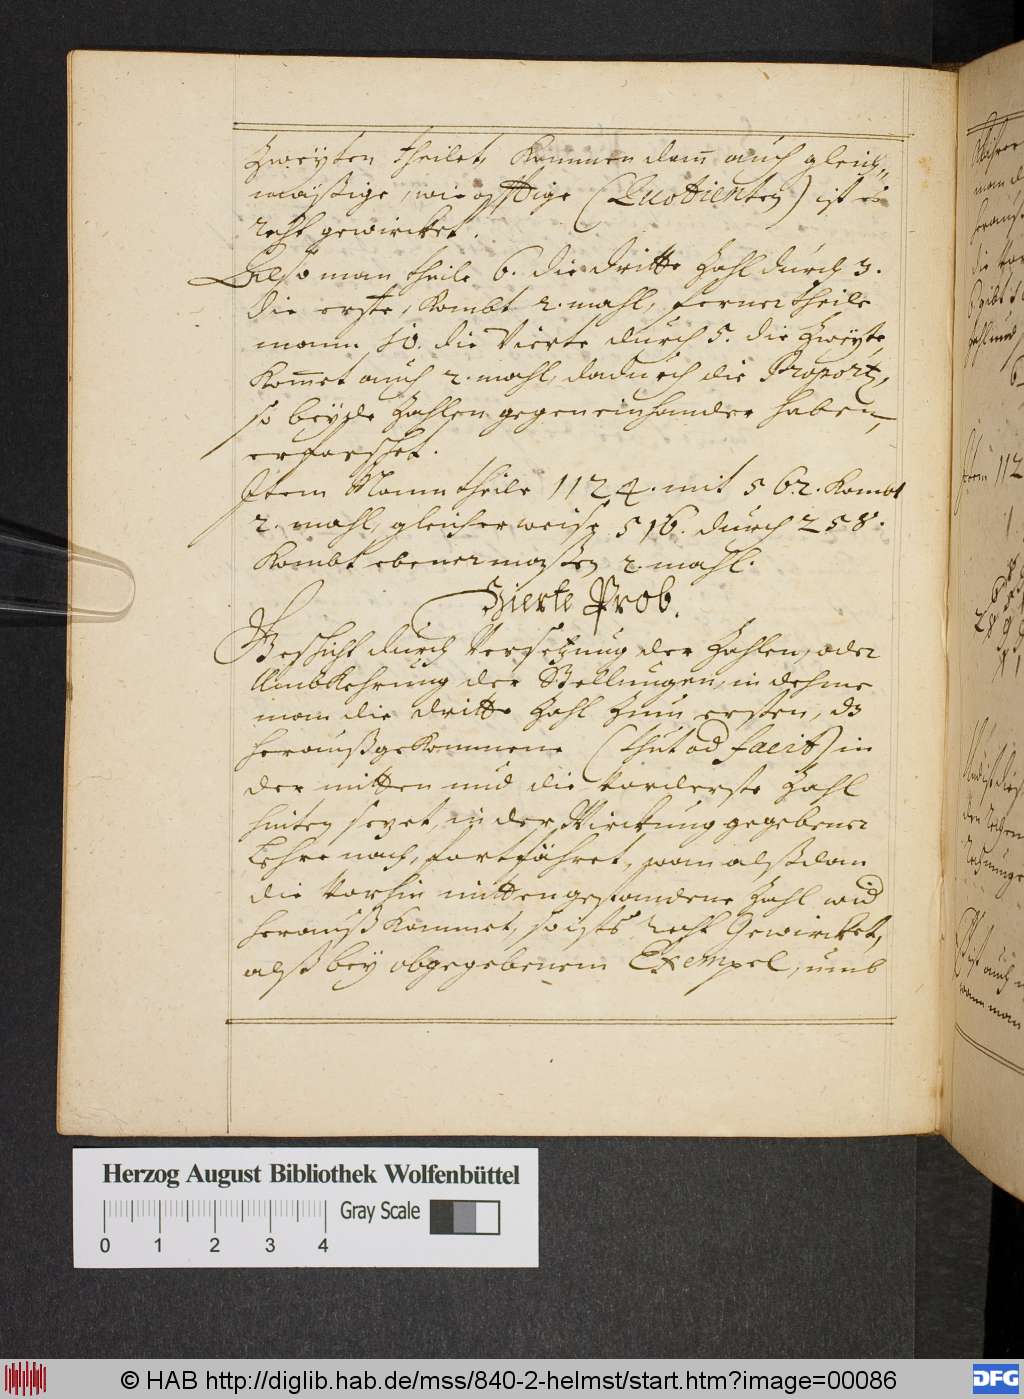 Zweyten theilet, Kommen dann auch gleich„
mäßige, (Quotienten) ist es
recht gewircket.
Alßo man theile 6. die dritte Zahl durch 3.
die erste, Kombt 2. mahl, ferner theile
mann 10. die Vierte durch 5. die Zweyte,
Kom̄et auch 2. mahl, dadurch die Proport,
so beyde Zahlen gegen einhander haben,
erforschet.
Item Mann theile 1124. mit 562. Kombt
2. mahl, gleicherweise 516. durch 258.
Kombt ebenermaßen 2. mahl.
Vierte Prob.
Geschicht durch Versetzung der Zahlen, oder
Umbkehrung der Stellungen, in dehme
man die dritte Zahl zum ersten, dz
heraußgekommene (thut od facit) in
der mitten und die vorderste Zahl
hinten sezet, in der Wirckung gegebener
Lehre nach, fortfähret, wan alßdan
die vorhin mittengestandene Zahl wid
herauß Kommet, so ists recht Gewircket,
alß bey obgegebenem Exempel, umb
112
Herzog August Bibliothek Wolfenbüttel
Gray Scale
0 1 2 3 4
© HAB http://diglib.hab.de/mss/840-2-helmst/start.htm?image=00086
DFG